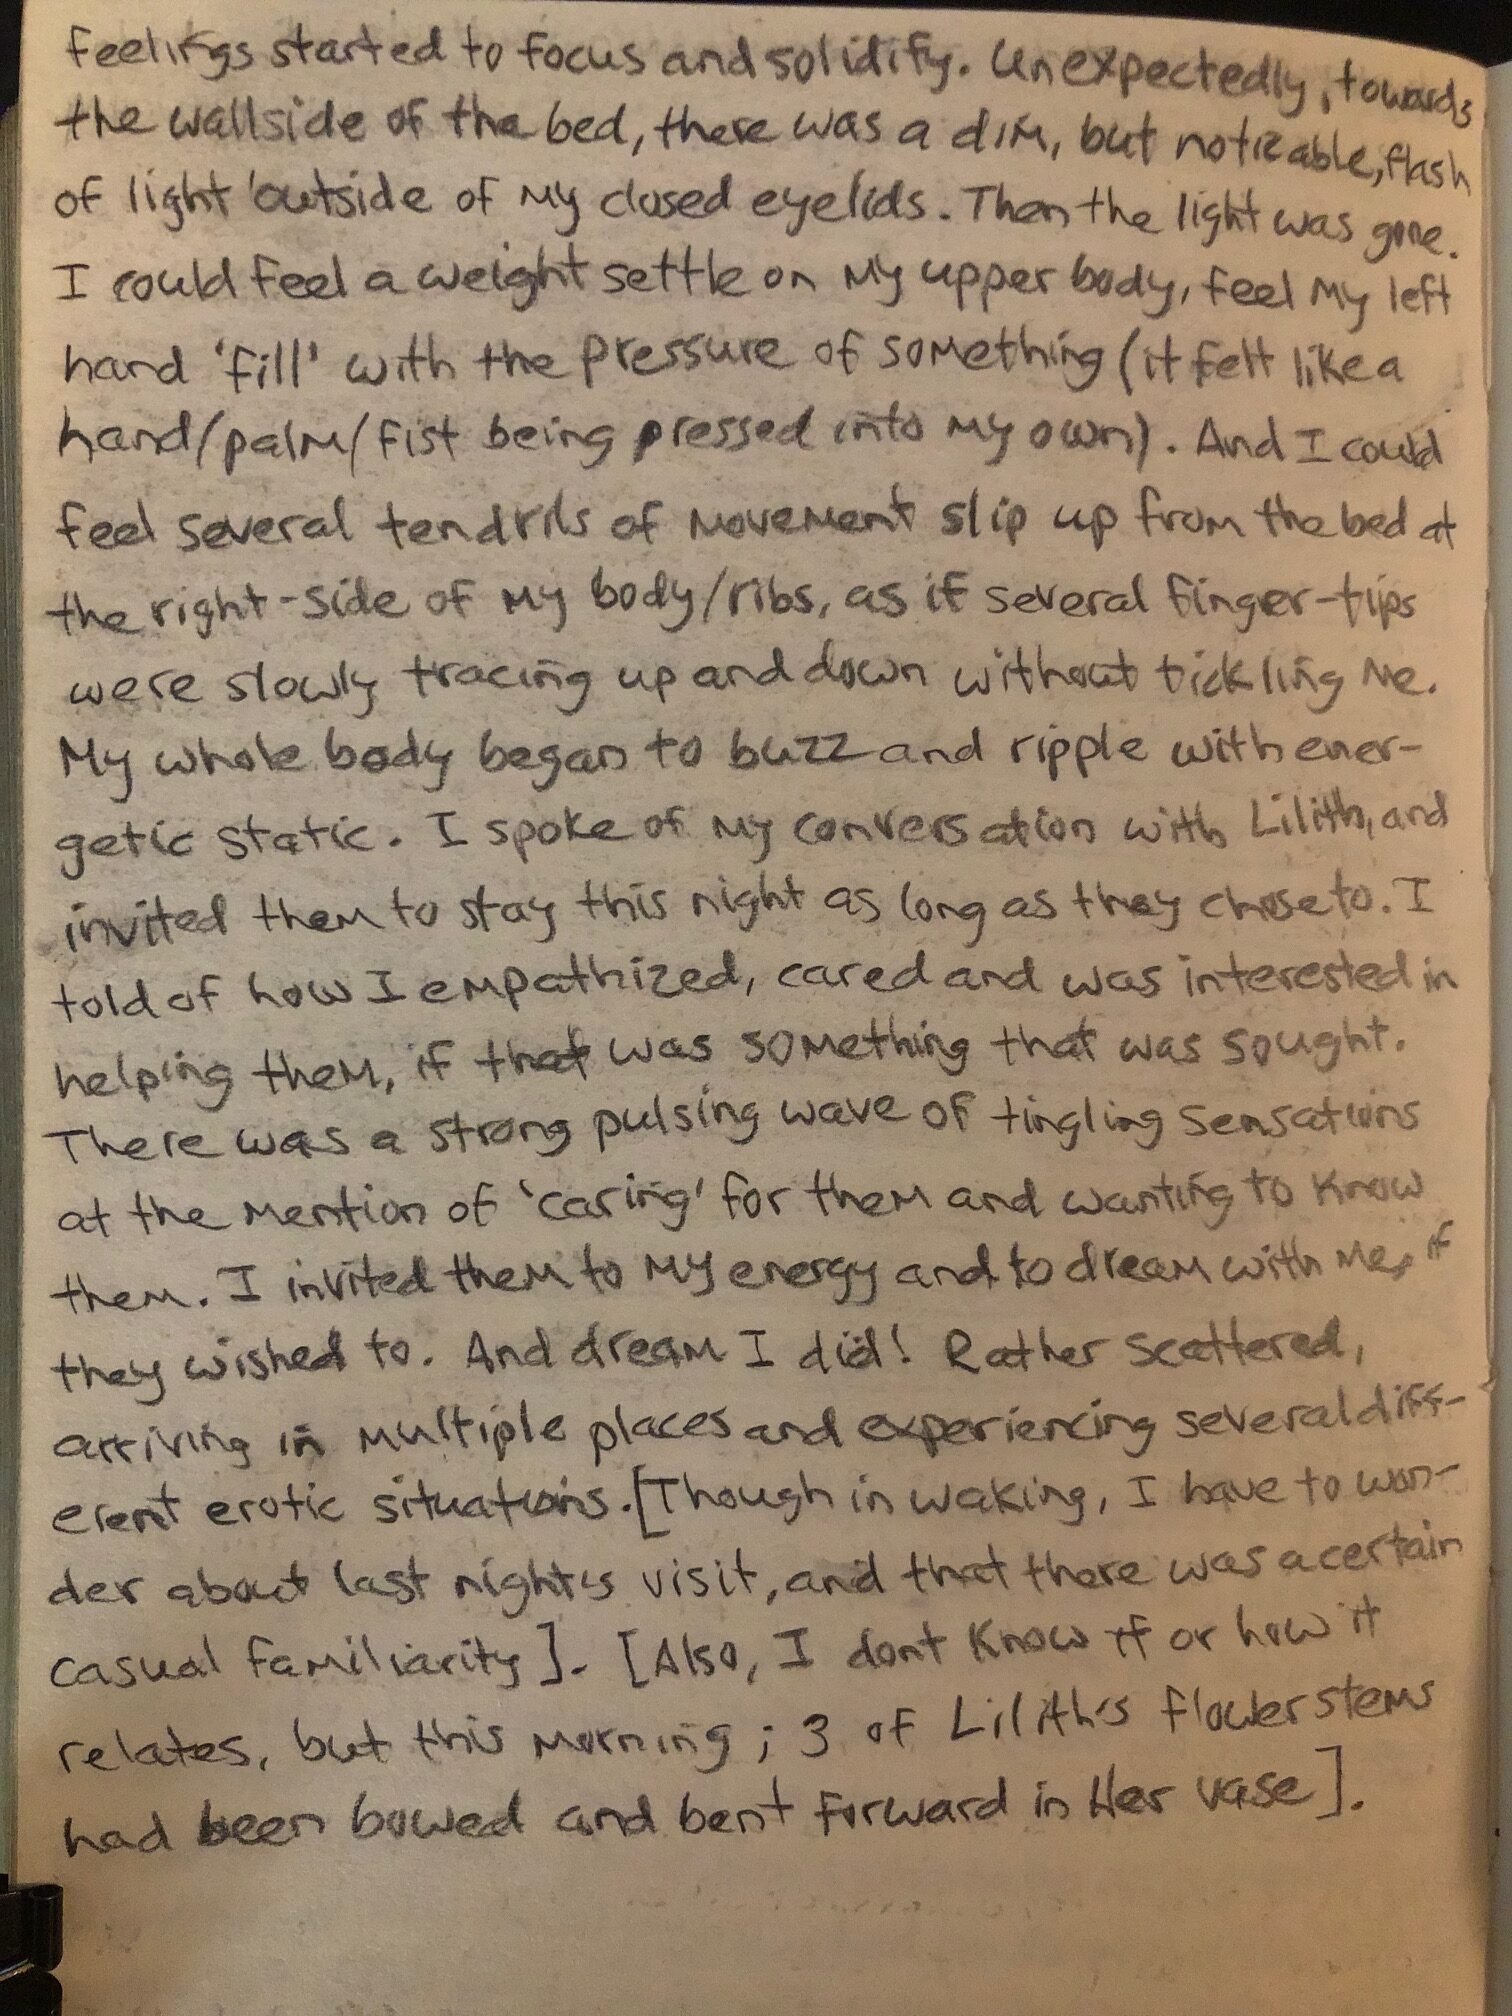 feelings started to focus and solidify. Unexpectedly, towards
the wallside of the bed, there was a dim, but noticable, flash
of light 'outside of my closed eyelids. Then the light was gone.
I could feel a weight settle on my upper body, feel my left
hand 'fill' with the pressure of something (it felt like a
hand/palm/fist being pressed into my own). And I could
feel several tendrils of movement slip up from the bed at
the right-side of my body/ribs, as if several finger-tips
were slowly tracing up and down without tickling me.
My whole body began to buzz and ripple with ener-
getic static. I spoke of my conversation with Lilith, and
invited them to stay this night as long as they chose to. I
told of how I empathized, cared and was interested in
helping them, if that was something that was sought.
There was a strong pulsing wave of tingling sensations
at the mention of 'caring' for them and wanting to know
them. I invited them to my energy and to dream with me, if
they wished to. And dream I did! Rather scattered,
arriving in multiple places and experiencing several diff-
erent erotic situations. [Though in waking, I have to won-
der about last night's visit, and that there was a certain
casual familiarity]. [Also, I dont know if or how it
relates, but this morning; 3 of Lilith's flower stems
had been bowed and bent forward in Her vase].